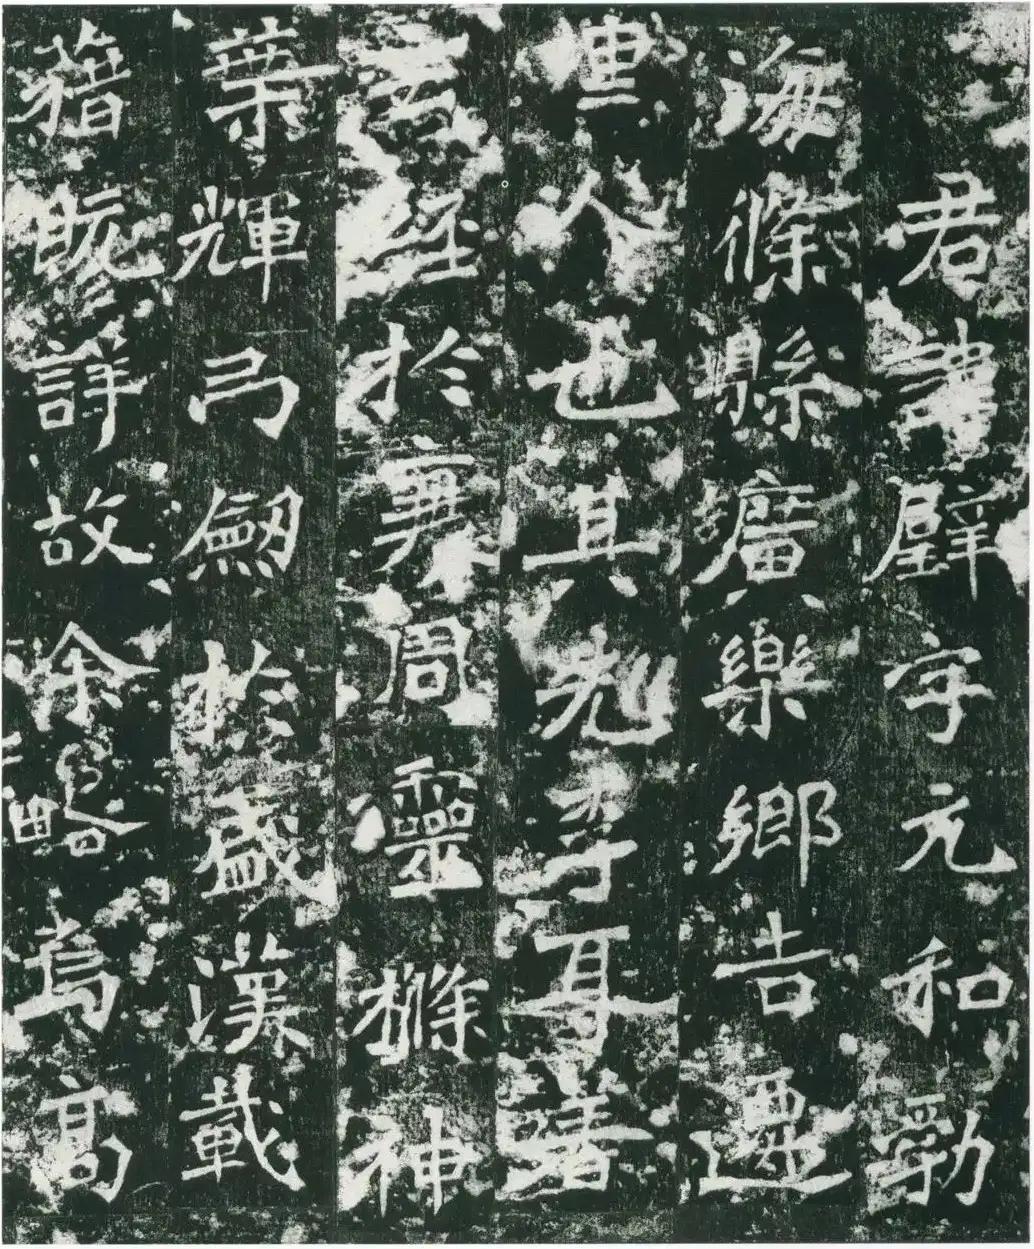 君諱璧字元和勃
海條縣廣樂鄉吉遷
里人也其先李耳著
玄經於衰周靈樤神
葉輝弓劒於盛漢載
籍既詳故余略焉高